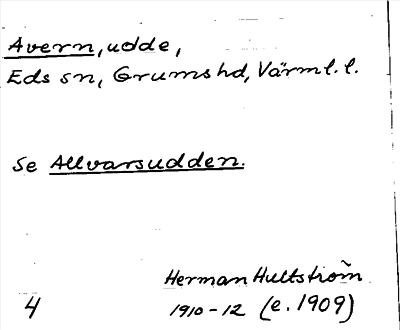 Avern, udde,
Eds sn, Grums hd, Värml. l.
Se Allvarsudden.
Herman Hultström
4 1910-12 (e. 1909)